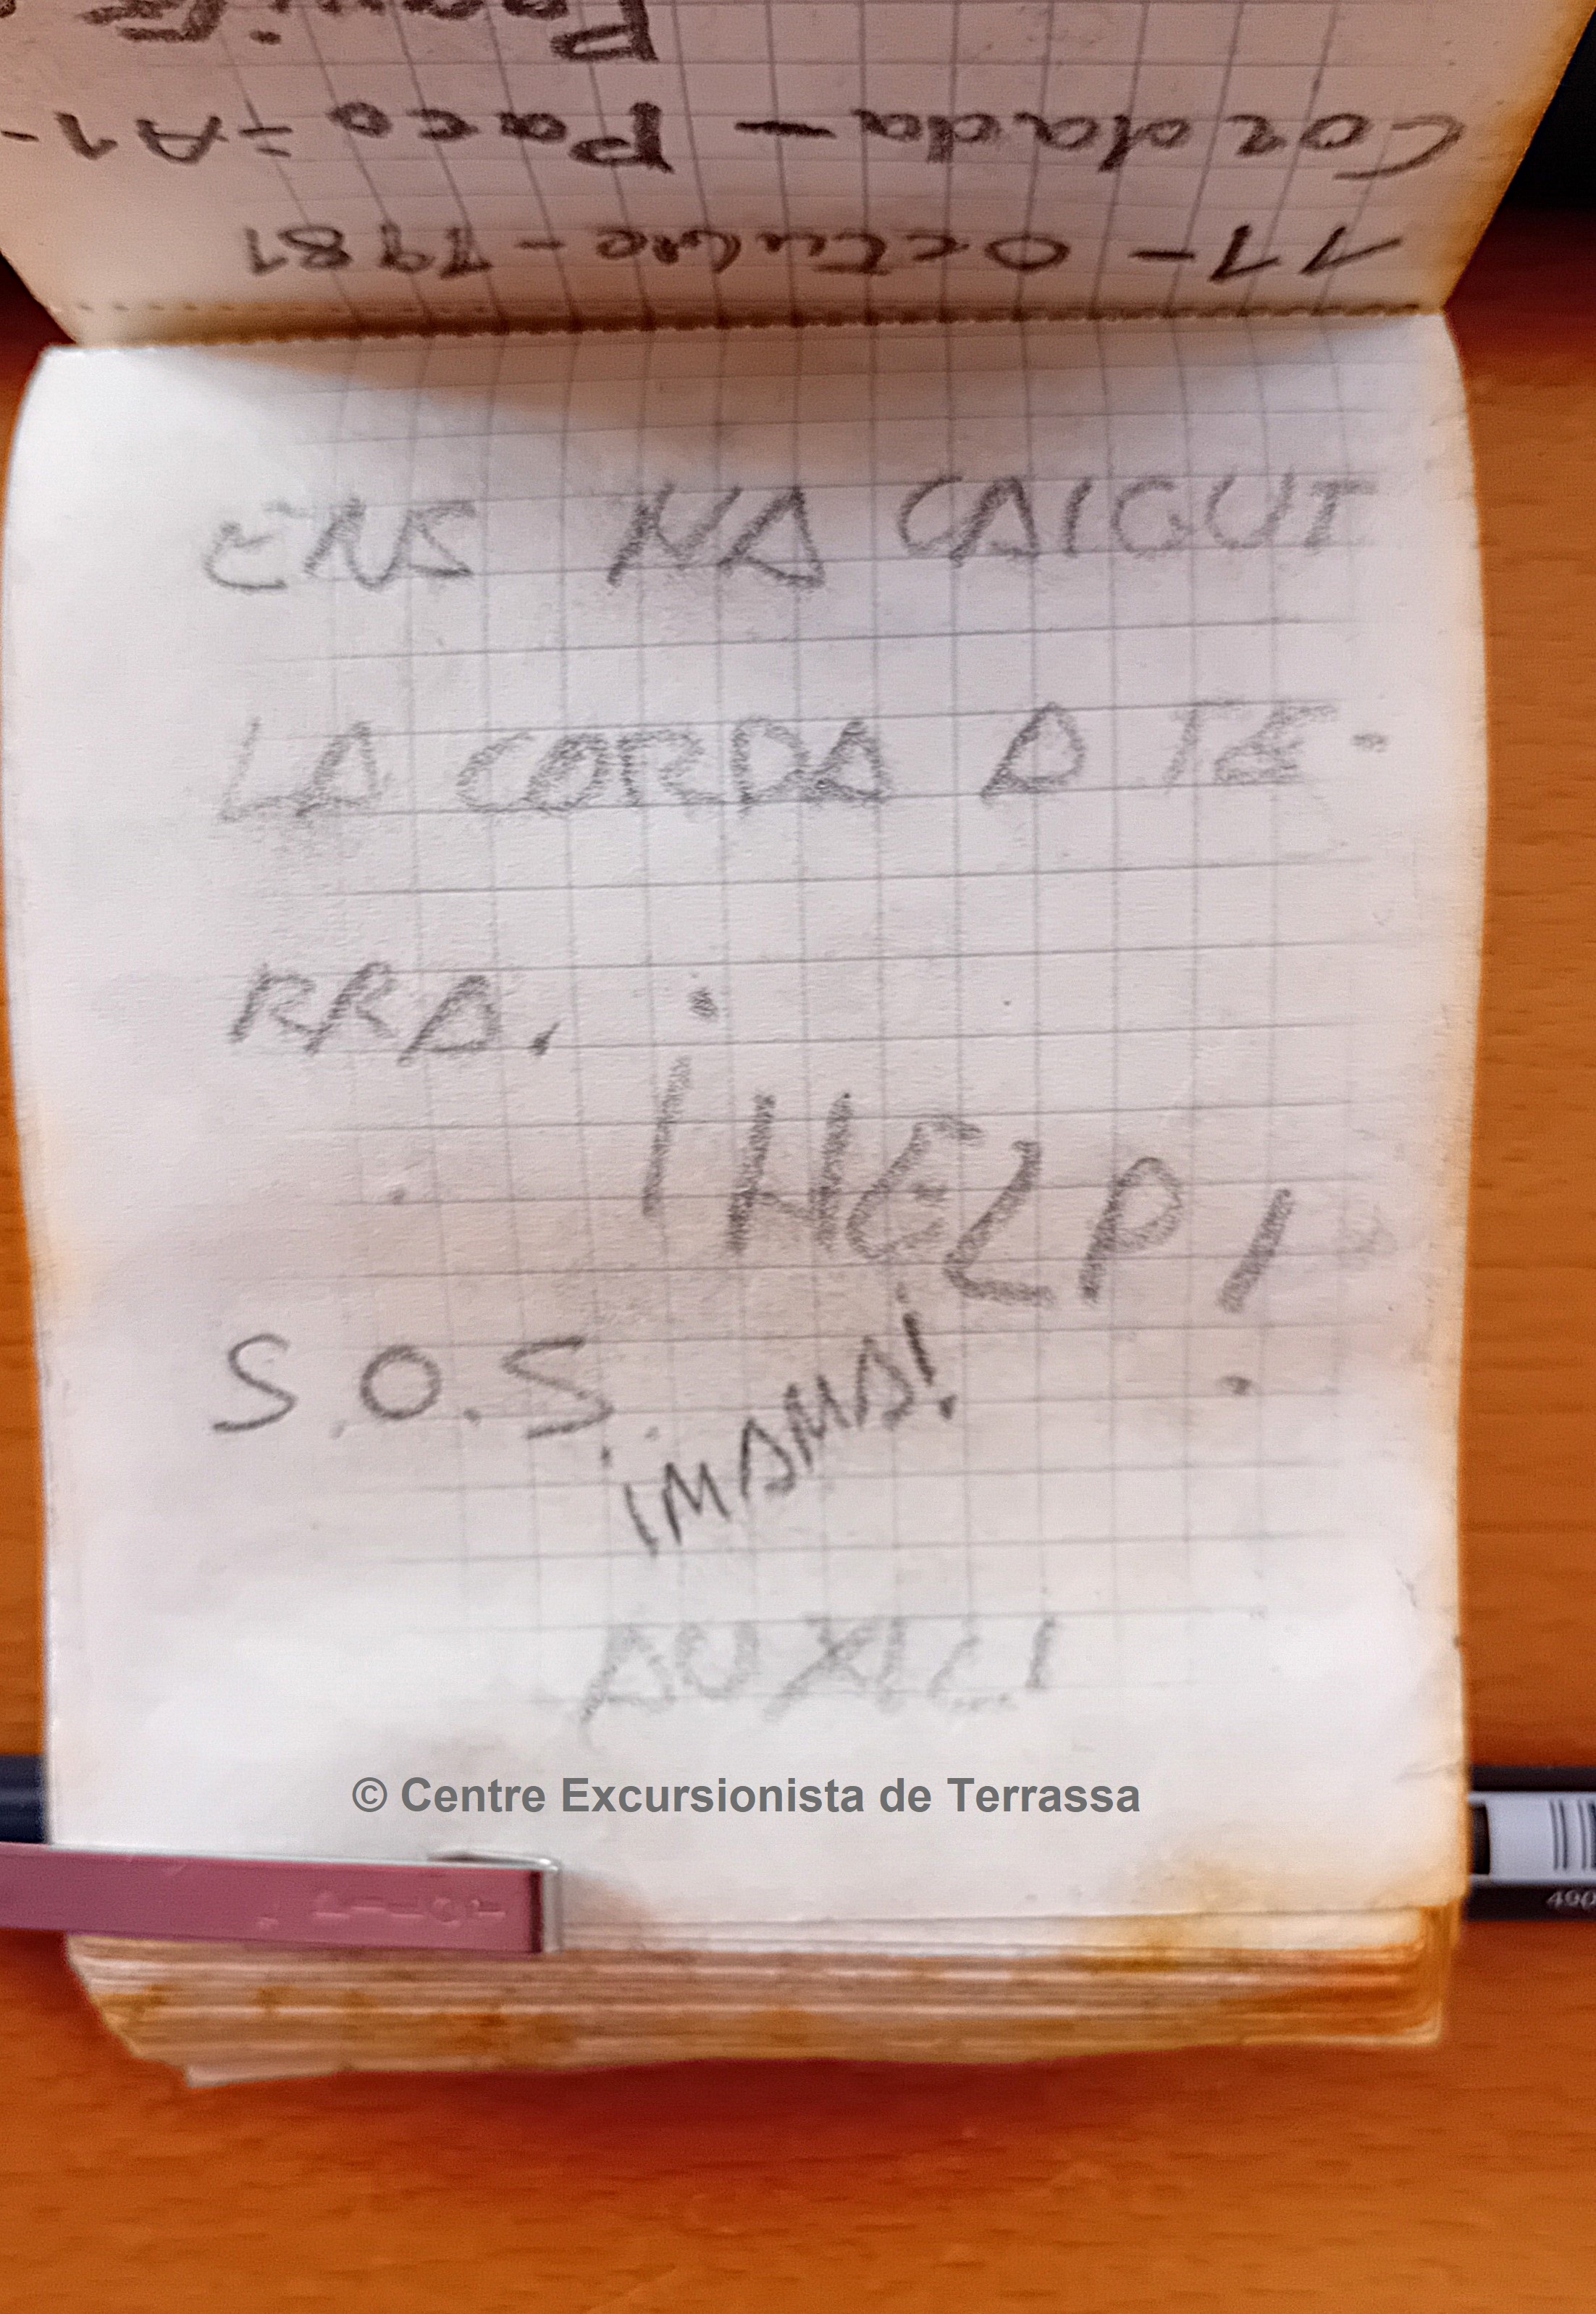 11-Octubre-1981
Cordada - Paco = A1-
ENS NA CAIGUT
LA CORDA A TE-
RRA.
¡HELP!
S.O.S.
¡MAMA!
AUXILI
© Centre Excursionista de Terrassa
490